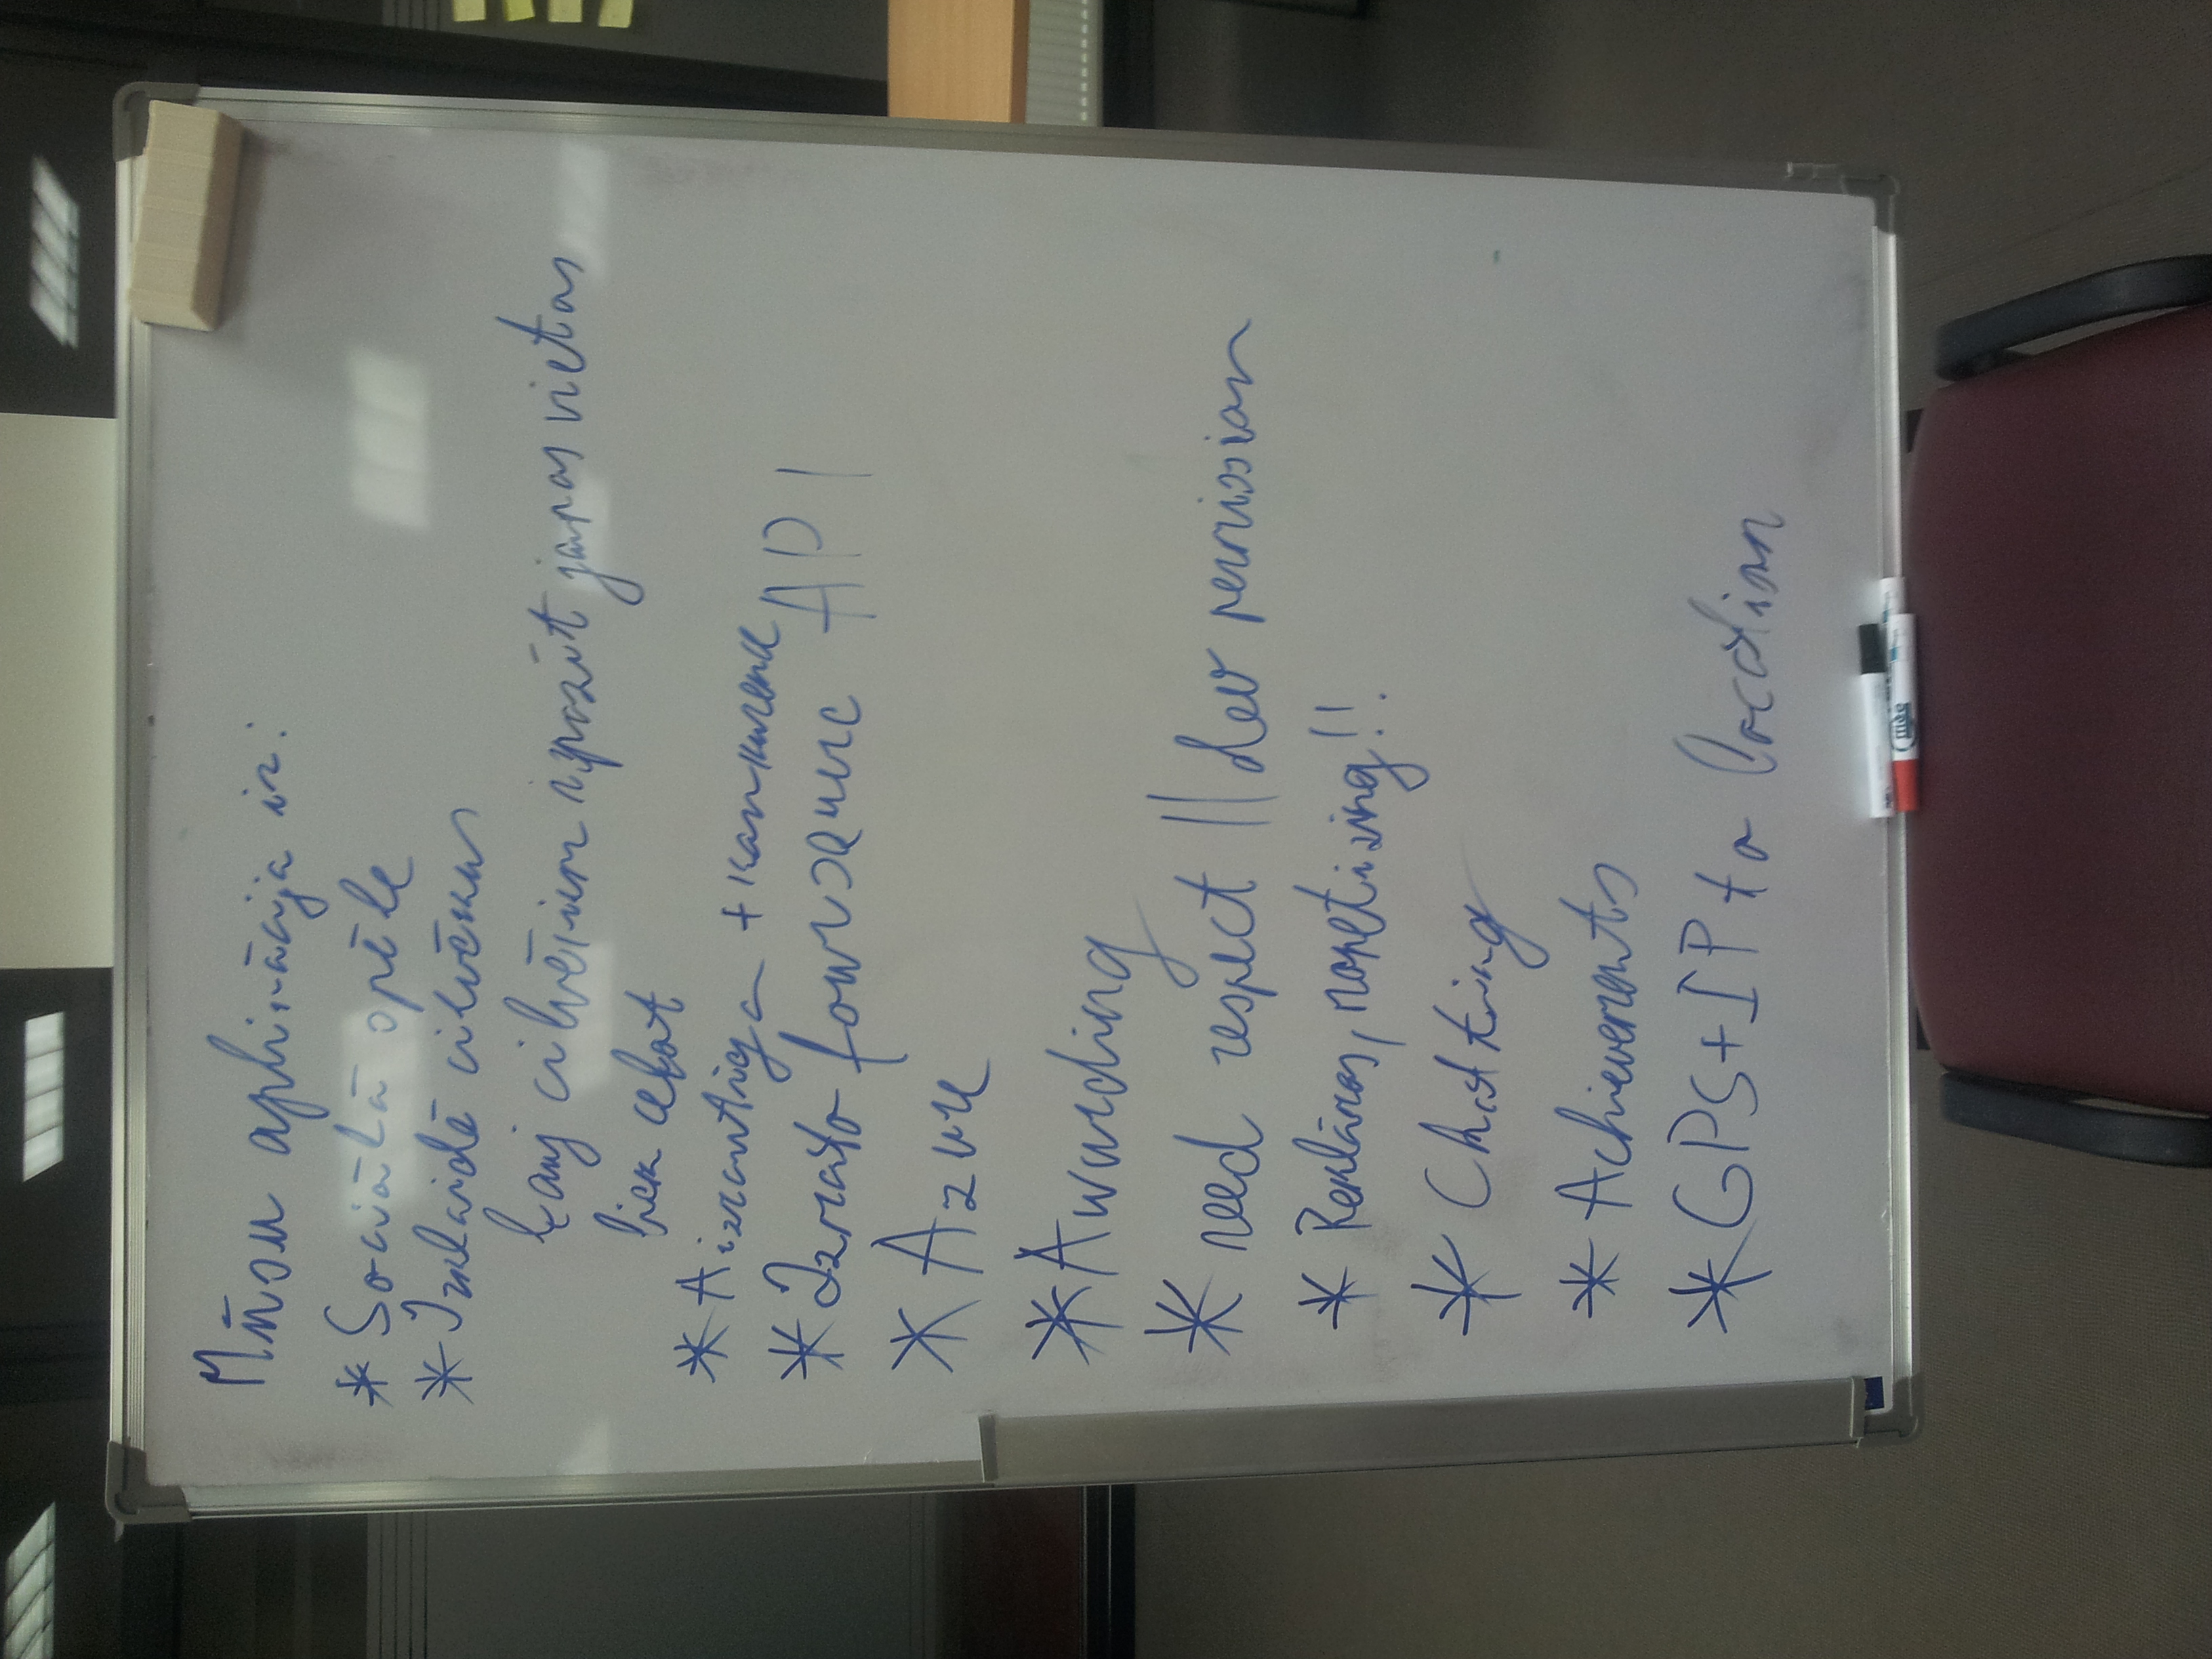 Mūsu aplikācija ir:
* Sociālā spēle
* Izklaidē cilvēkus
Ļauj cilvēkiem iepazīt jaunas vietas
liek ceļot
* Aizrautīga + konkurence
* Izmato foursquare API
* Azure
* Awarding
* need respect || dev permission
* Reklāmas, monetizing!!
* Chatting
* Achievements
* GPS+IP to location